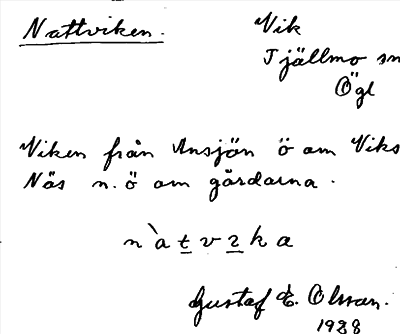 Nattviken.
Vik
Tjällmo sn
Ögl
Viken från Ansjön ö om Viks
Näs n.ö om gårdarna.
n`atvzka
Gustaf E. Olsson.
1928